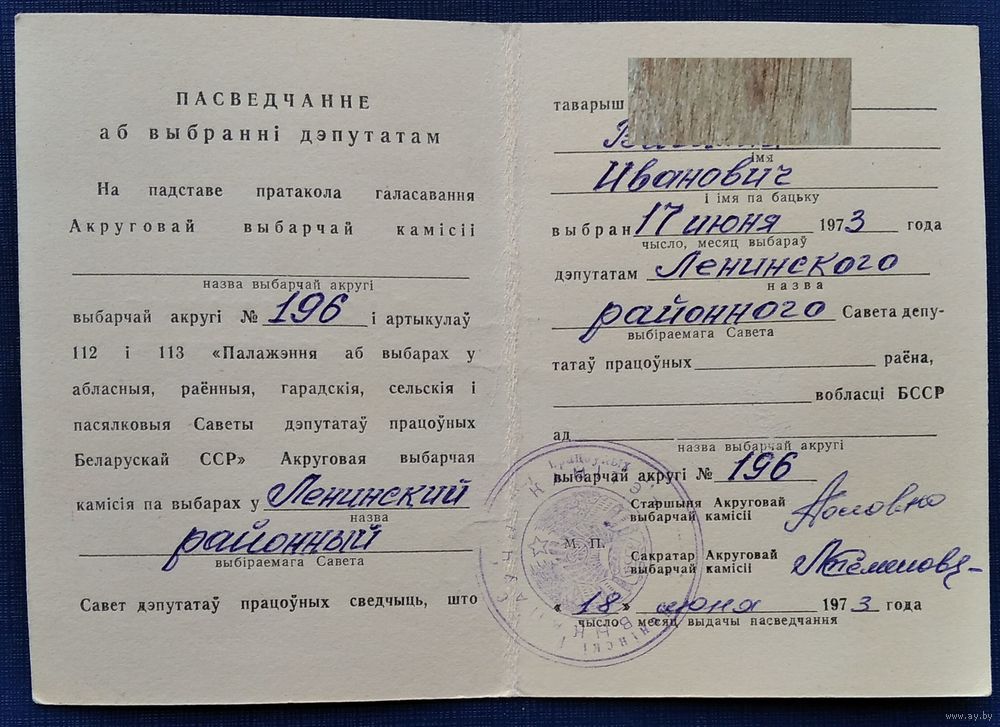 ПАСВЕДЧАННЕ
аб выбранні дэпутатам
На падставе пратакола галасавання
Акруговай выбарчай камісіі
назва выбарчай акругі
выбарчай акругі № 196 і артыкулаў
112 і 113 «Палажэння аб выбарах у
абласныя, раённыя, гарадскія, сельскія і
пасялковыя Саветы дэпутатаў працоўных
Беларускай ССР» Акруговая выбарчая
камісія па выбарах у Ленинский
назва
районный
выбіраемага Савета
Савет дэпутатаў працоўных сведчыць, што
таварыш
імя
Иванович
і імя па бацьку
выбран 17 июня 1973 года
чысло, месяц выбараў
дэпутатам Ленинского
назва
районного Савета дэпу-
выбіраемага Савета
татаў працоўных раёна,
вобласці БССР
ад
назва выбарчай акругі
выбарчай акругі № 196
Старшыня Акруговай
выбарчай камісіі
М. П.
Сакратар Акруговай
выбарчай камісіі
«18» июня 1973 года
чысло месяц выдачы пасведчання
www.ay.by